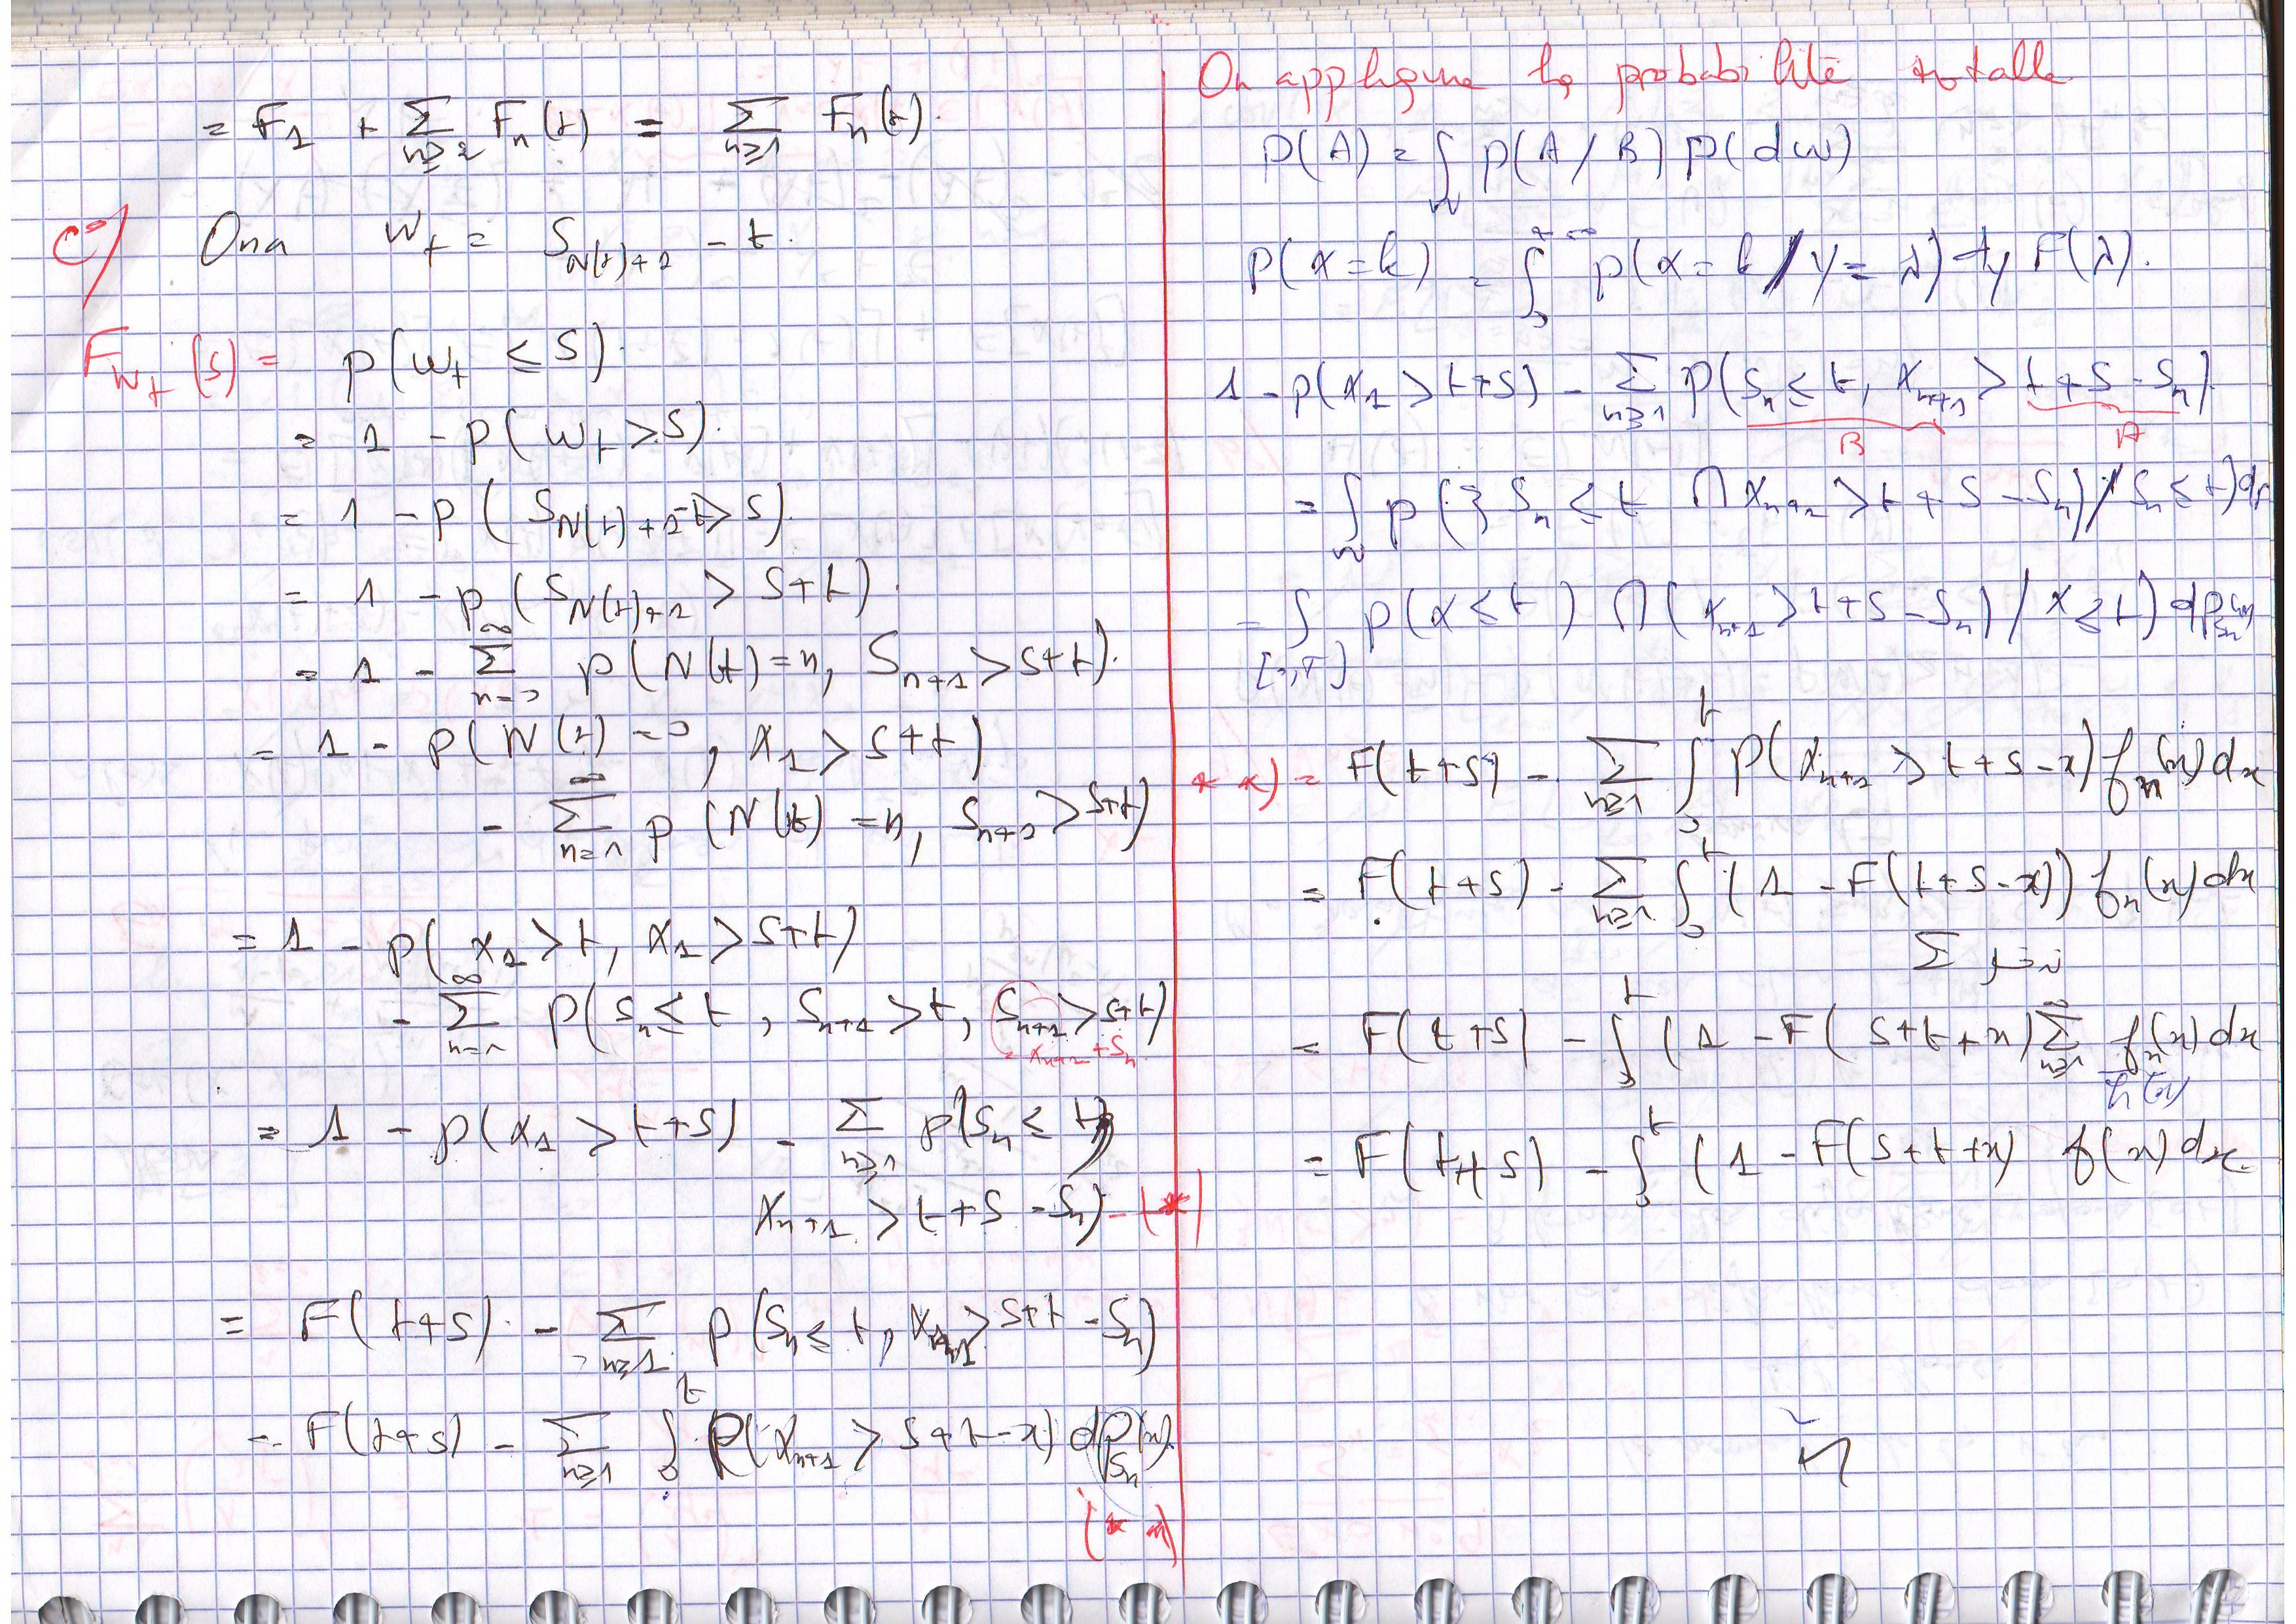 = F₁ + Σ_{n≥2} Fₙ(t) = Σ_{n≥1} Fₙ(t).
c°/ On a W_t = S_{N(t)+1} - t.
F_{W_t}(s) = P(W_t ≤ s).
= 1 - P(W_t > s).
= 1 - P(S_{N(t)+1} - t > s).
= 1 - P(S_{N(t)+1} > s+t).
= 1 - Σ_{n=0}^{∞} P(N(t)=n, S_{n+1} > s+t).
= 1 - P(N(t)=0, X₁ > s+t)
- Σ_{n=1}^{∞} P(N(t)=n, S_{n+1} > s+t)
= 1 - P(X₁ > t, X₁ > s+t)
- Σ_{n=1}^{∞} P(Sₙ ≤ t, S_{n+1} > t, S_{n+1} > s+t)
= X_{n+1} + Sₙ
= 1 - P(X₁ > t+s) - Σ_{n≥1} P(Sₙ ≤ t,
X_{n+1} > t+s - Sₙ) - (*)
= F(t+s) - Σ_{n≥1} P(Sₙ ≤ t, X_{n+1} > s+t - Sₙ)
= F(t+s) - Σ_{n≥1} ∫₀^t P(X_{n+1} > s+t-x) dP_{Sₙ}(x).
(* *)
On applique la probabilité totalle
P(A) = ∫_W P(A/B) P(dw)
P(X=k) = ∫₀^{+∞} P(X=k / Y=λ) dy F(λ).
1 - P(X₁ > t+s) - Σ_{n≥1} P(Sₙ ≤ t, X_{n+1} > t+s-Sₙ)
B A
= ∫_W P({Sₙ ≤ t ∩ X_{n+1} > t+s-Sₙ) / Sₙ ≤ t) dP
= ∫_{[0,T]} P(X ≤ t) ∩ (X_{n+1} > t+s-Sₙ) / X ≤ t) dP_{Sₙ}(x)
* *) = F(t+s) - Σ_{n≥1} ∫₀^t P(X_{n+1} > t+s-x) fₙ(x) dx
= F(t+s) - Σ_{n≥1} ∫₀^t (1 - F(t+s-x)) fₙ(x) dx
= F(t+s) - ∫₀^t (1 - F(s+t+x) Σ_{n≥1}^{∞} fₙ(x) dx
h(x)
= F(t+s) - ∫₀^t (1 - F(s+t+x) f(x) dx.